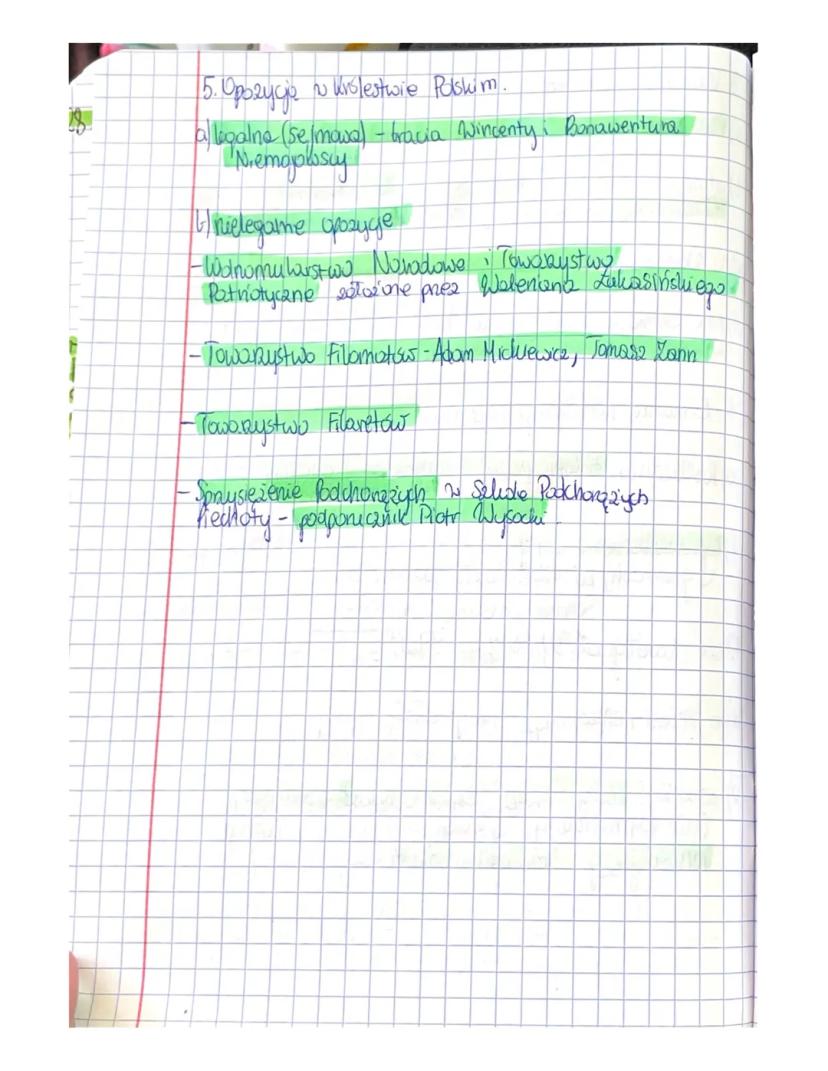 5. Opozycja w Królestwie Polskim.
a) legalna (sejmowa) - bracia Wincenty i Bonawentura
Niemojowscy
b) nielegalne opozycje
- Wolnomularstwo Narodowe i Towarzystwo
Patriotyczne założone przez Waleriana Łukasińskiego
- Towarzystwo Filomatów - Adam Mickiewicz, Tomasz Zann
- Towarzystwo Filaretów
- Sprzysiężenie Podchorążych w Szkole Podchorążych
Piechoty - podporucznik Piotr Wysocki.